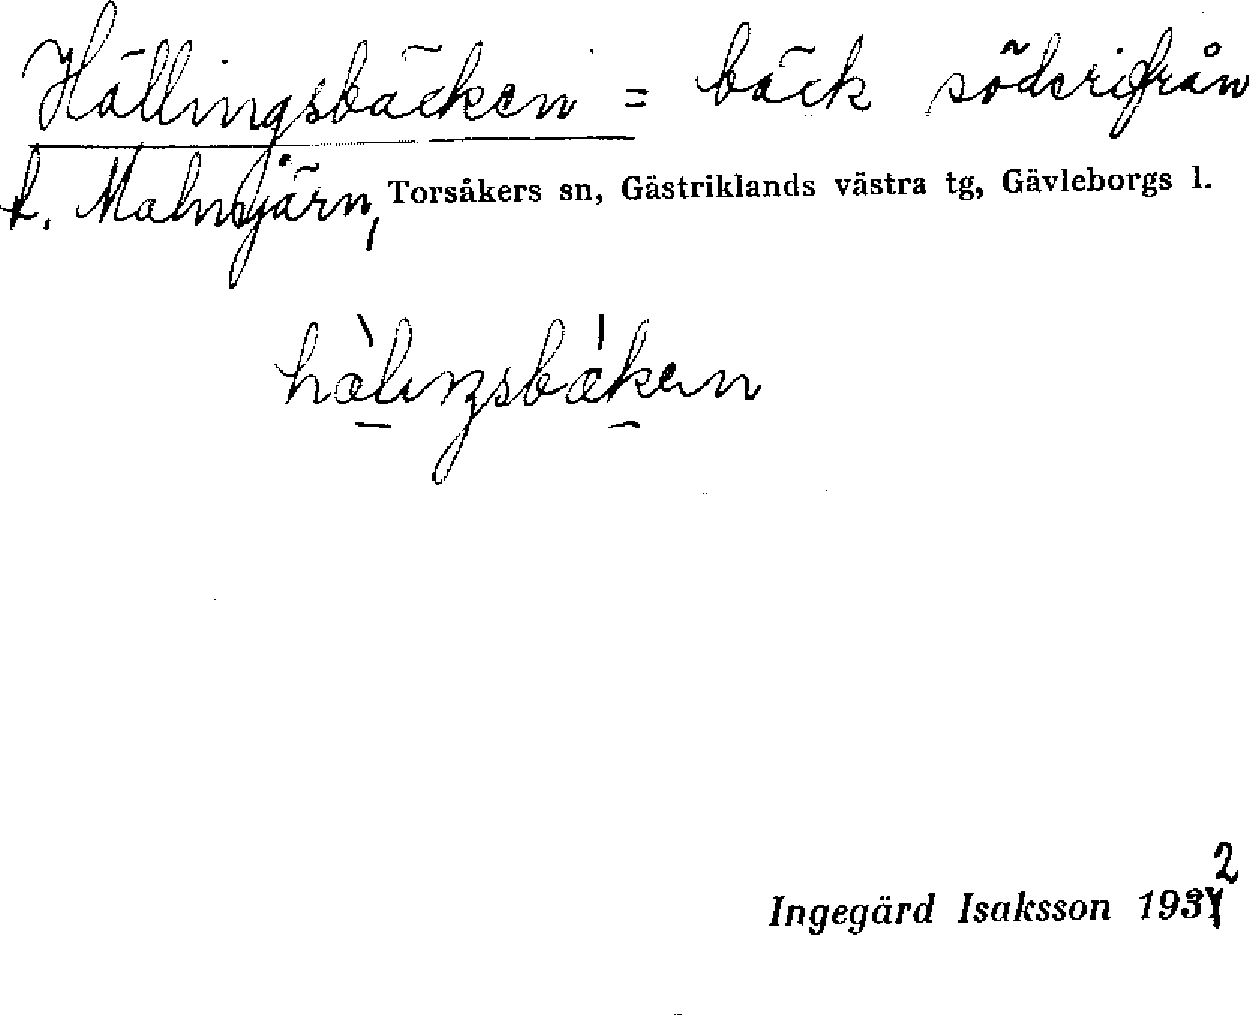 Hällingsbäcken = bäck söderifrån
t. Malmjärn, Torsåkers sn, Gästriklands västra tg, Gävleborgs l.
hàlıŋsbákən
Ingegärd Isaksson 1932